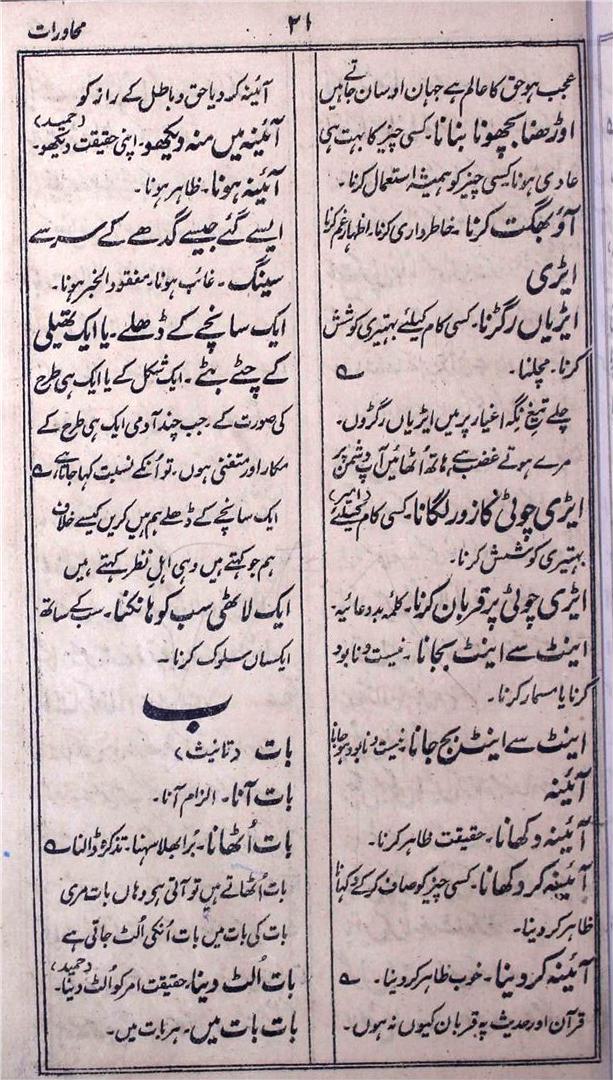 محاورات
۲۱
عجب ہو حق کا عالم ہے جہان اوسان جاتے ہیں
اوڑھنا بچھونا بنانا۔ کسی چیز کا بہت ہی
عادی ہونا۔ کسی چیز کو ہمیشہ استعمال کرنا۔
آؤ بھگت کرنا۔ خاطرداری کرنا۔ اظہار غم کرنا
ایڑی
ایڑیاں رگڑنا۔ کسی کام کیلئے بہتیری کوشش
کرنا۔ مچلنا۔ ؎
چلے تیغِ نگہ اغیار پر میں ایڑیاں رگڑوں۔
مرے ہوتے غضب ہے ہاتھ اُٹھائیں آپ دشمن پر
ایڑی چوٹی کا زور لگانا۔ کسی کام کیلئے (امیر)
بہتیری کوشش کرنا۔
ایڑی چوٹی پر قربان کرنا۔ کلمہ بددعائیہ۔
اینٹ سے اینٹ بجانا۔ نیست و نابود
کرنا یا مسمار کرنا۔
اینٹ سے اینٹ بج جانا۔ نیست و نابود ہو جانا
آئینہ
آئینہ دکھانا۔ حقیقت ظاہر کرنا۔
آئینہ کر دکھانا۔ کسی چیز کو صاف کر کے کہنا
ظاہر کر دینا۔
آئینہ کر دینا۔ خوب ظاہر کر دینا۔ ؎
قرآن اور حدیث پہ قربان کیوں نہ ہوں۔
آئینہ کر دیا حق و باطل کے راز کو
آئینہ میں منہ دیکھو۔ اپنی حقیقت دیکھو۔ (حمید)
آئینہ ہونا۔ ظاہر ہونا۔
ایسے گئے جیسے گدھے کے سر سے
سینگ۔ غائب ہونا۔ مفقود الخبر ہونا۔
ایک سانچے کے ڈھلے۔ یا ایک تھیلی
کے چٹے بٹے۔ ایک شکل کے یا ایک ہی طرح
کی صورت کے۔ جب چند آدمی ایک ہی طرح کے
مکار اور متفنی ہوں۔ تو اُنکے نسبت کہا جاتا ہے ؎
ایک سانچے کے ڈھلے ہم ہیں کریں کیسے خلاف
ہم جو کہتے ہیں وہی اہلِ نظر کہتے ہیں
ایک لاٹھی سب کو ہانکنا۔ سب کے ساتھ
ایکساں سلوک کرنا۔
ب
بات (تانیث)
بات آنا۔ الزام آنا۔
بات اُٹھانا۔ بُرا بھلا سہنا۔ تذکرہ ڈالنا ؎
بات اُٹھاتے ہیں تو آتی ہی وہاں بات مری
بات کی بات میں بات اُنکی اُلٹ جاتی ہے
بات اُلٹ دینا۔ حقیقت امر کو اُلٹ دینا۔ (حمید)
بات بات میں۔ ہر بات میں۔